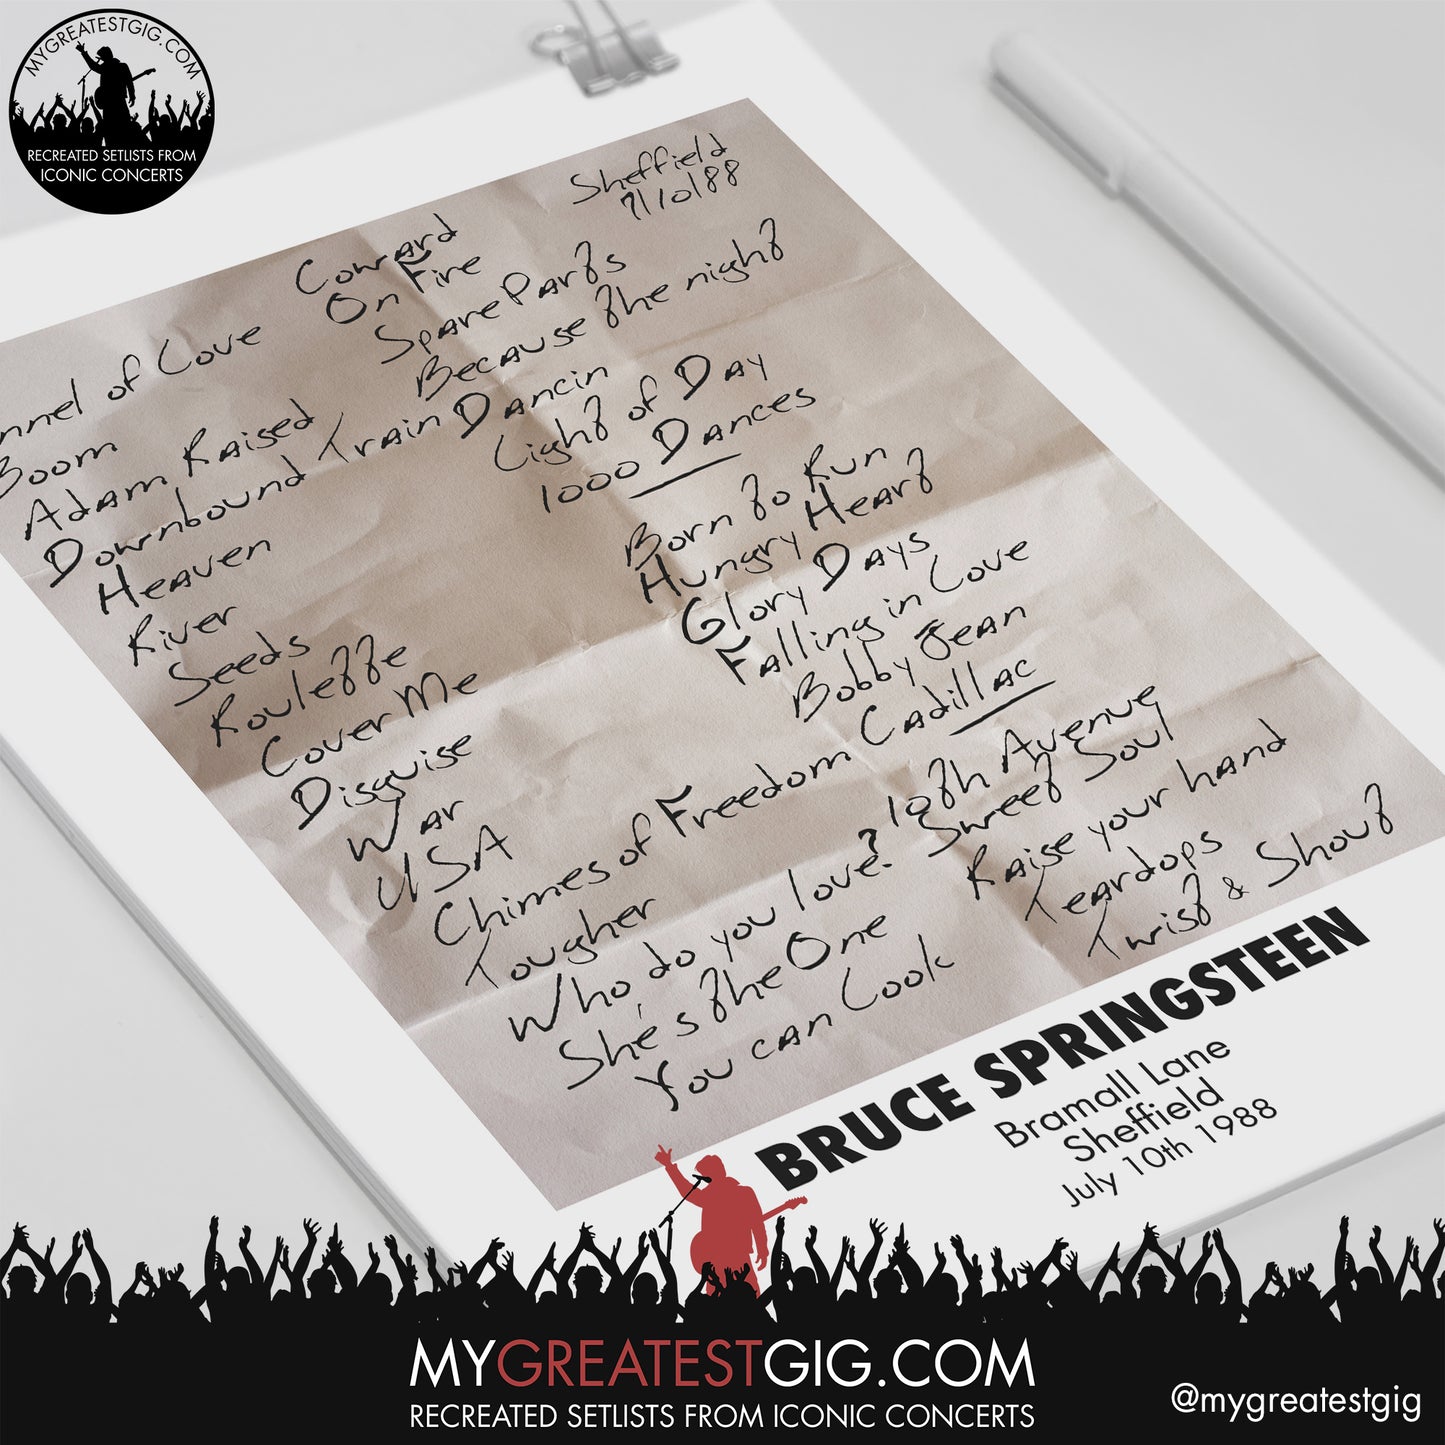 MYGREATESTGIG.COM
RECREATED SETLISTS FROM
ICONIC CONCERTS
Sheffield
7/10/88
nnel of Love
Boom
Adam Raised
Downbound Train
Heaven
River
Seeds
Roulette
Cover Me
Disguise
War
USA
Chimes of Freedom
Tougher
Who do you love?
She's the One
You can Look
Coward
On Fire
Spare Parts
Because the night
Dancin
Light of Day
1000 Dances
Born to Run
Hungry Heart
Glory Days
Falling in Love
Bobby Jean
Cadillac
10th Avenue
Sweet Soul
Raise your hand
Teardops
Twist & Shout
BRUCE SPRINGSTEEN
Bramall Lane
Sheffield
July 10th 1988
MYGREATESTGIG.COM
RECREATED SETLISTS FROM ICONIC CONCERTS
@mygreatestgig